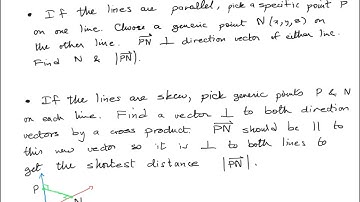 • If the lines are parallel, pick a specific point P
on one line. Choose a generic point N(x,y,z) on
the other line. PN ⊥ direction vector of either line.
Find N & |PN|.
• If the lines are skew, pick generic points P & N
on each line. Find a vector ⊥ to both direction
vectors by a cross product. PN should be || to
this new vector so it is ⊥ to both lines to
get the shortest distance |PN|.
P
N